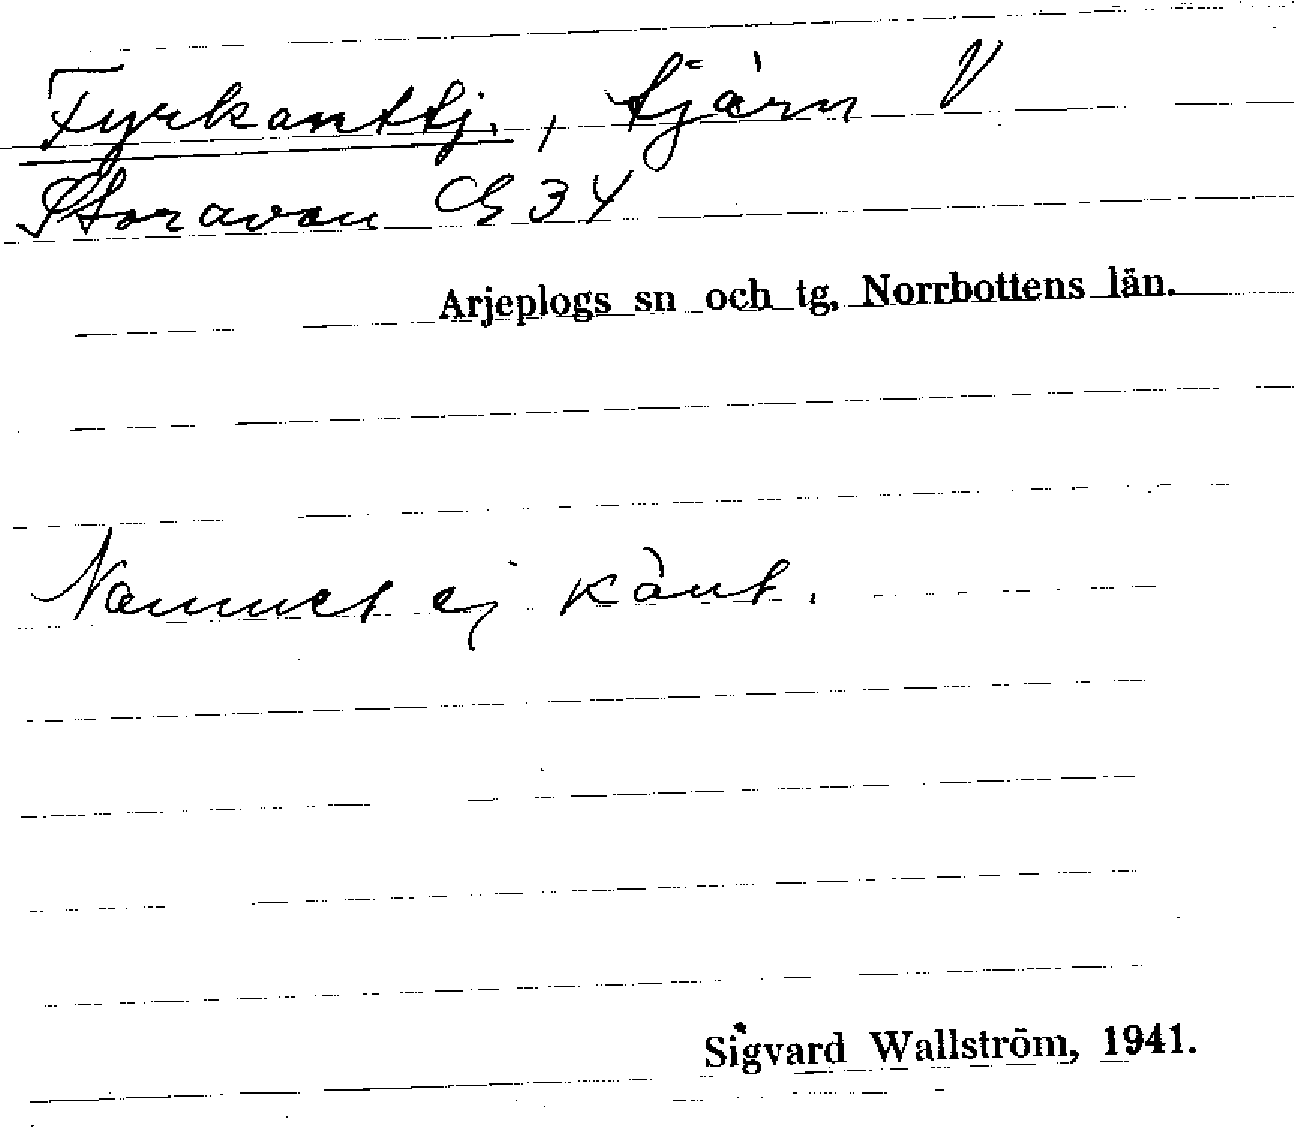 Fyrkanttj., tjärn V
Storavan CE 34
Arjeplogs sn och tg, Norrbottens län.
Namnet ej känt.
Sigvard Wallström, 1941.